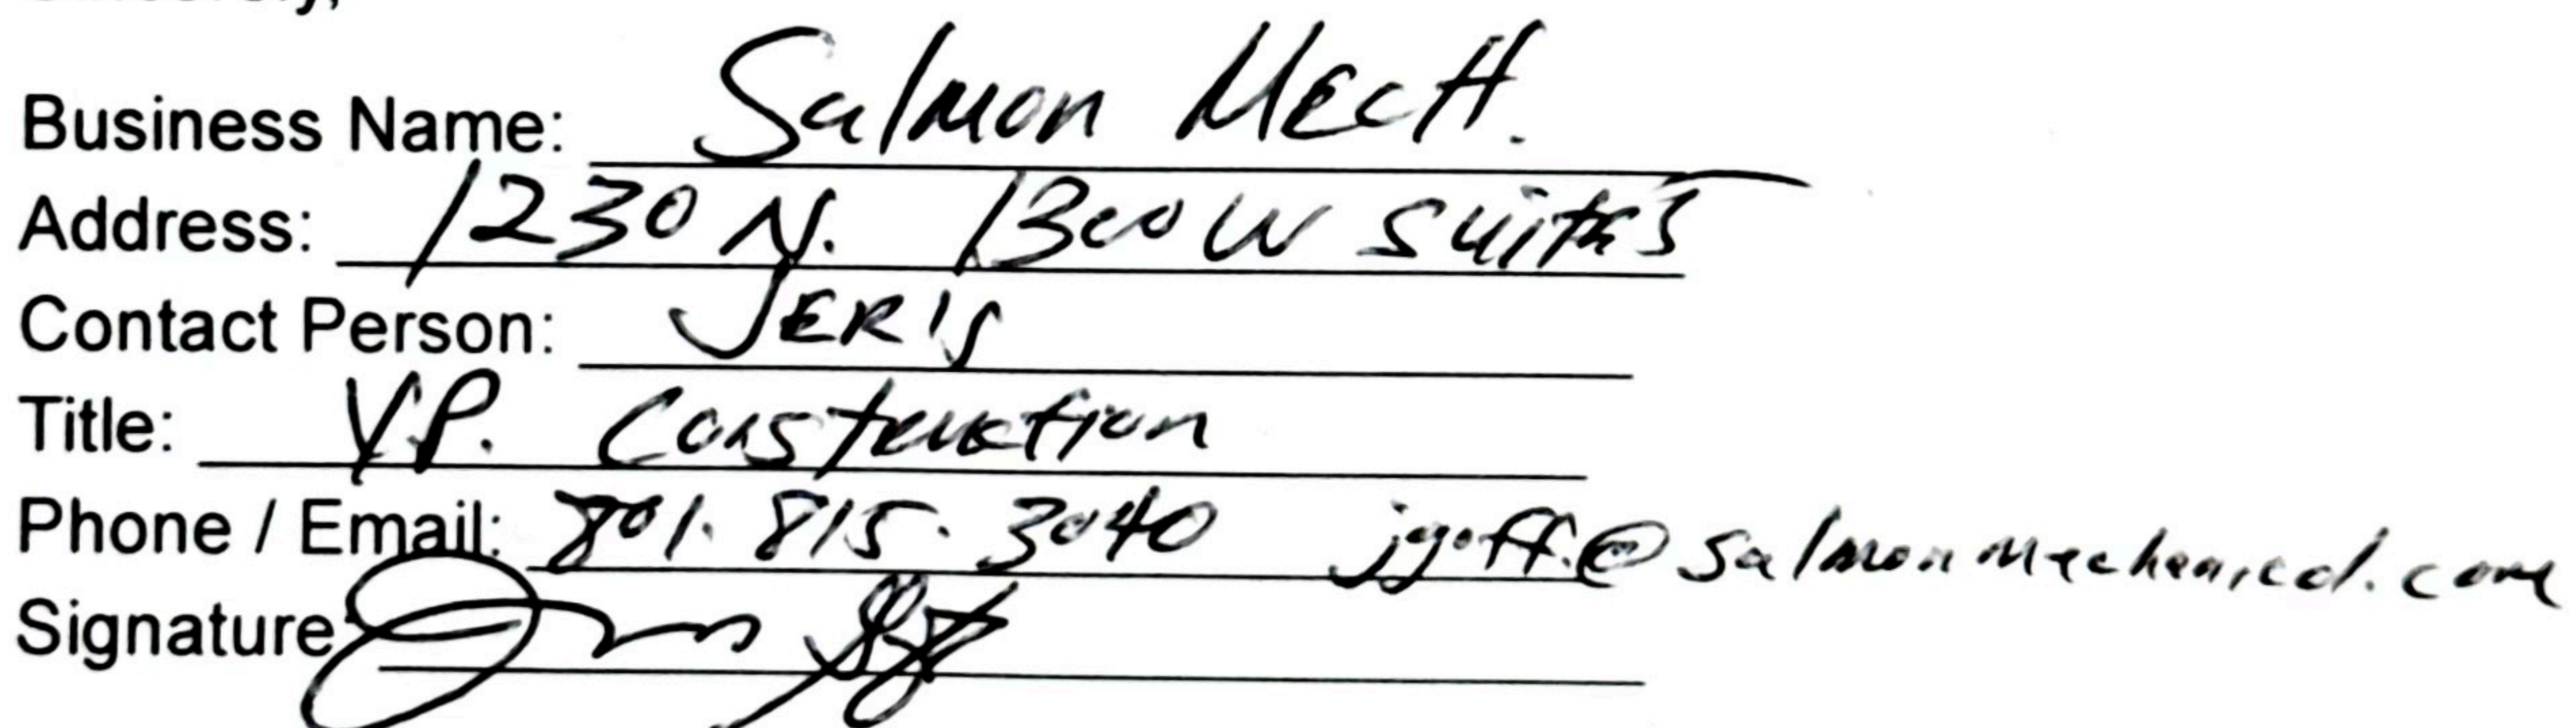 Sincerely,
Business Name: Salmon MECH.
Address: 1230 N. 1300 W Suite 5
Contact Person: JERIS
Title: V.P. Construction
Phone / Email: 801.815.3040 jgoff@salmonmechanical.com
Signature